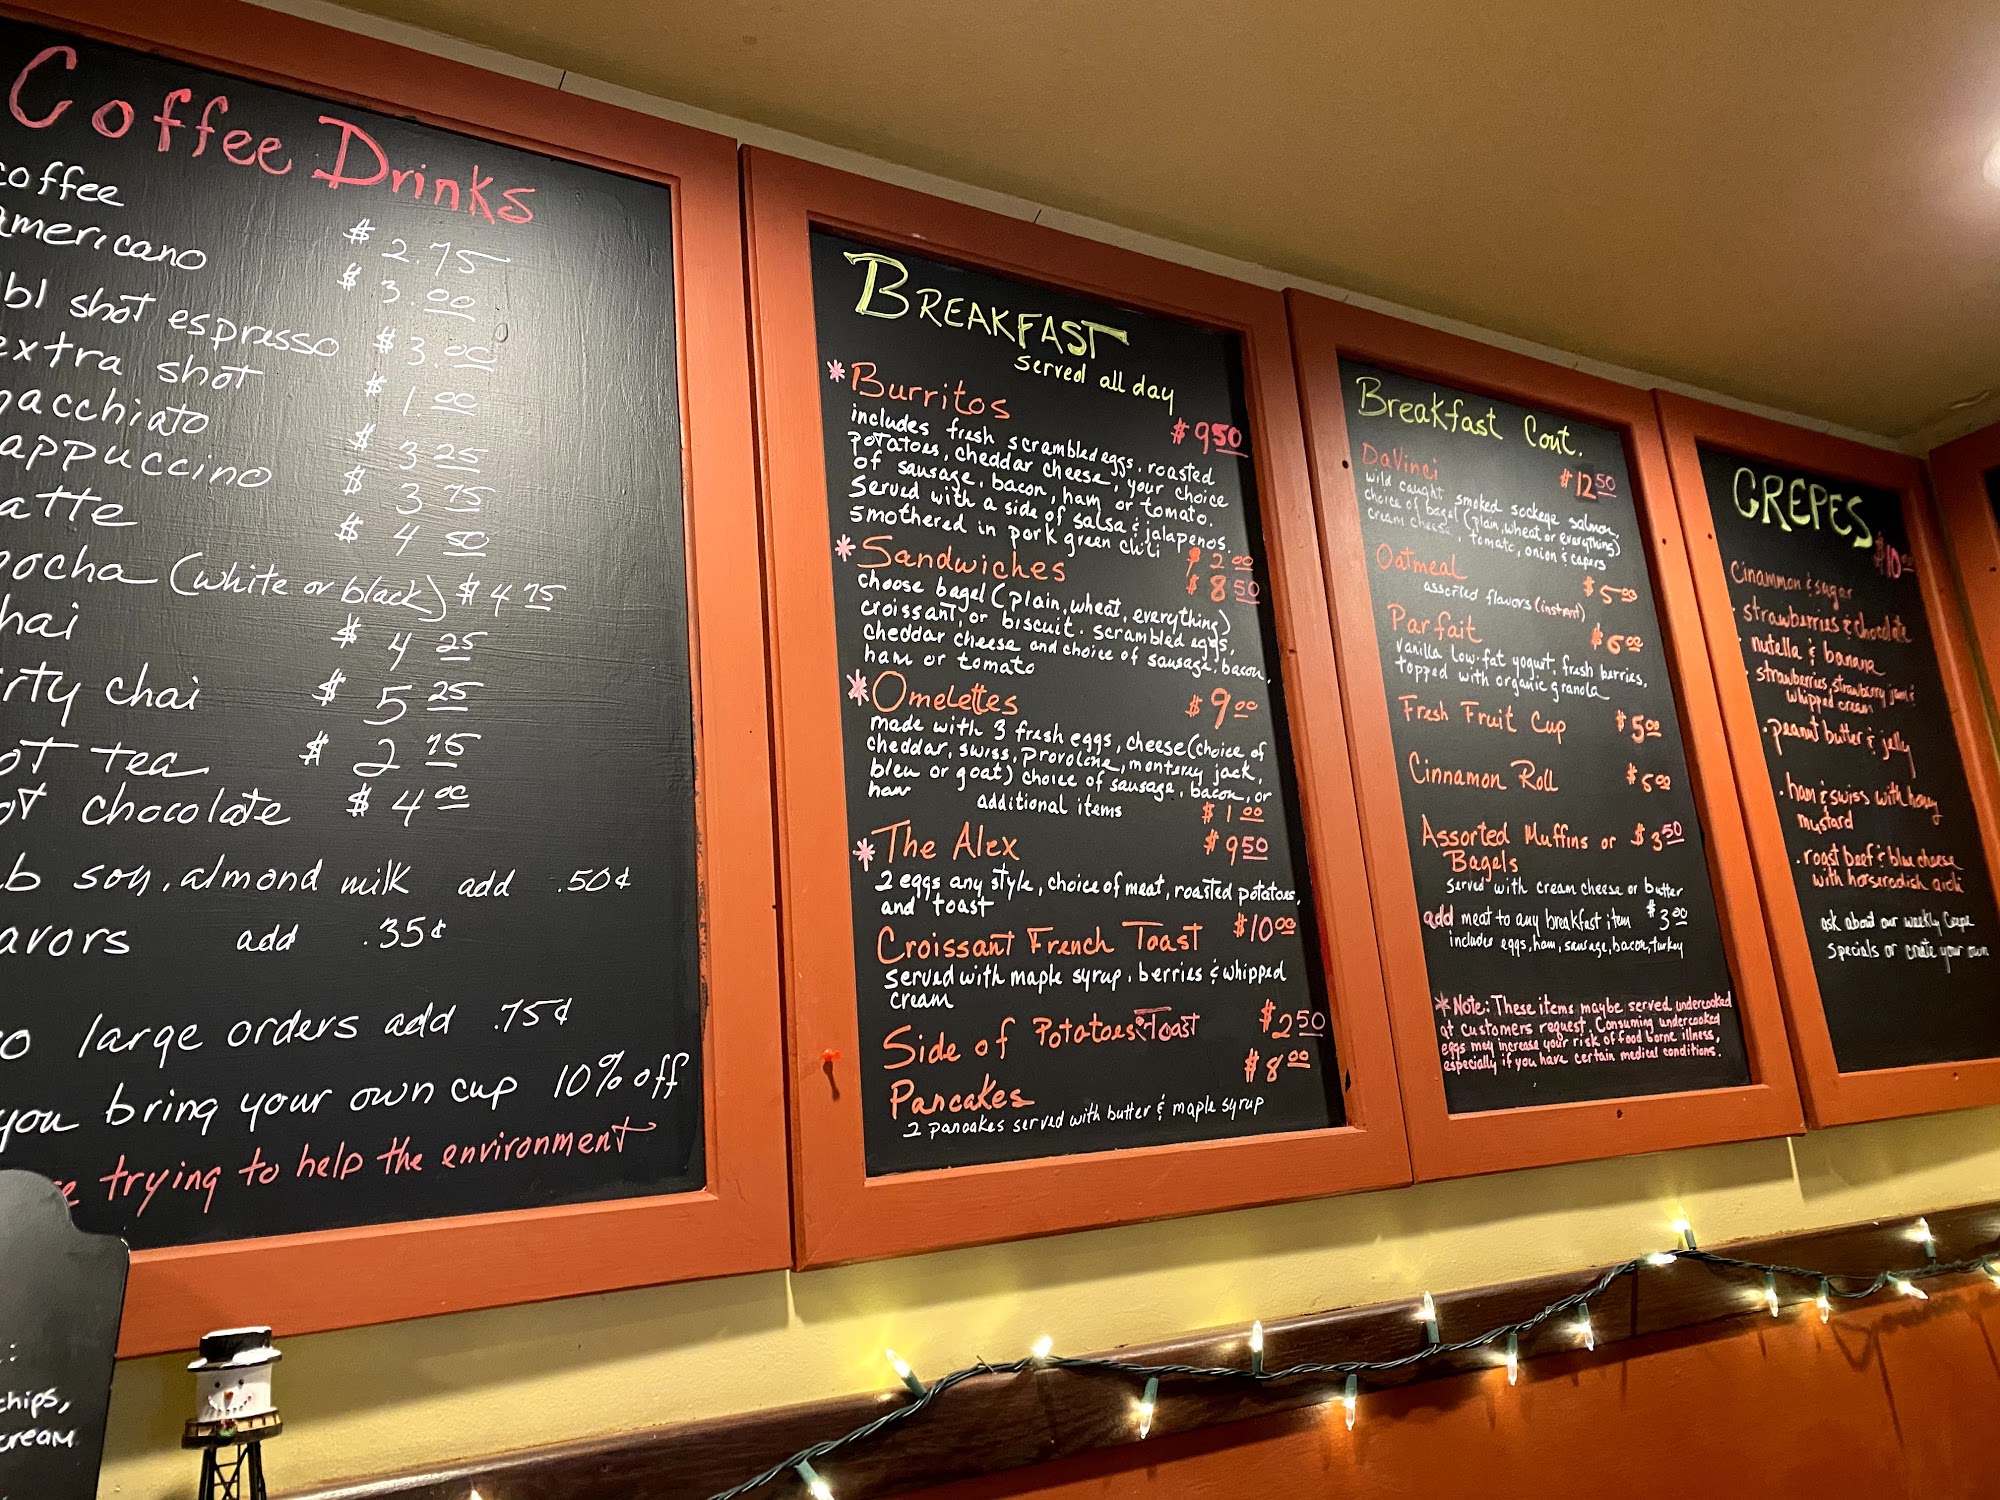 Coffee Drinks
coffee $2.75
americano $3.00
bl shot espresso $3.00
extra shot $1.00
acchiato $3.25
appuccino $3.75
atte $4.50
ocha (white or black) $4.75
hai $4.25
irty chai $5.25
ot tea $2.75
ot chocolate $4.00
b soy, almond milk add .50¢
avors add .35¢
large orders add .75¢
you bring your own cup 10% off
trying to help the environment
chips,
cream
BREAKFAST
served all day
*Burritos $9.50
includes fresh scrambled eggs, roasted
potatoes, cheddar cheese, your choice
of sausage, bacon, ham or tomato.
Served with a side of salsa & jalapenos.
smothered in pork green chili $2.00
*Sandwiches $8.50
choose bagel (plain, wheat, everything)
croissant, or biscuit. scrambled eggs,
cheddar cheese and choice of sausage, bacon,
ham or tomato
*Omelettes $9.00
made with 3 fresh eggs, cheese (choice of
cheddar, swiss, provolone, monterey jack,
bleu or goat) choice of sausage, bacon, or
ham additional items $1.00
*The Alex $9.50
2 eggs any style, choice of meat, roasted potatoes,
and toast
Croissant French Toast $10.00
served with maple syrup, berries & whipped
cream
Side of Potatoes Toast $2.50
Pancakes $8.00
2 pancakes served with butter & maple syrup
Breakfast Cont.
DaVinci $12.50
wild caught smoked sockeye salmon,
choice of bagel (plain, wheat or everything)
cream cheese, tomato, onion & capers
Oatmeal $5.00
assorted flavors (instant)
Parfait $6.00
vanilla low-fat yogurt, fresh berries,
topped with organic granola
Fresh Fruit Cup $5.00
Cinnamon Roll $5.00
Assorted Muffins or $3.50
Bagels
served with cream cheese or butter
add meat to any breakfast item $3.00
includes eggs, ham, sausage, bacon, turkey
*Note: These items maybe served undercooked
at customers request. Consuming undercooked
eggs may increase your risk of food borne illness,
especially if you have certain medical conditions.
CREPES $10.00
Cinammon & sugar
· strawberries & chocolate
· nutella & banana
· strawberries, strawberry jam &
whipped cream
· peanut butter & jelly
· ham & swiss with honey
mustard
· roast beef & blue cheese
with horseradish
ask about our weekly Crepe
specials or create your own